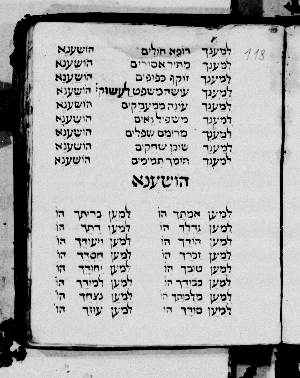 למענך רופא חולים הושענא
למענך מתיר אסורים הושענא
למענך זוקף כפופים הושענא
למענך עושה משפט לעשוקי הושענא
למענך עונה ממעמקים הושענא
למענך משפיל גאים הושענא
למענך מרומם שפלים הושענא
למענך שוכן שחקים הושענא
למענך תומך תמימים הושענא
הושענא
למען אמתך הו למען בריתך הו
למען גדלך הו למען דתך הו
למען הודך הו למען ויעודך הו
למען זכרך הו למען חסדך הו
למען טובך הו למען יחודך הו
למען כבודך הו למען למודך הו
למען מלכותך הו למען נצחך הו
למען סודך הו למען עוזך הו